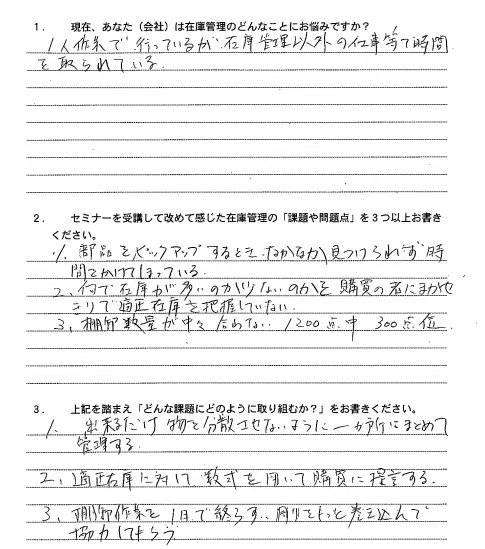 1. 現在、あなた（会社）は在庫管理のどんなことにお悩みですか？
1人作業で行っているが、在庫管理以外の仕事等で時間
を取られている。
2. セミナーを受講して改めて感じた在庫管理の「課題や問題点」を３つ以上お書き
ください。
1. 部品をピックアップするとき、なかなか見つけられず時
間をかけてしまっている。
2、何で在庫が多いのか少ないのかを購買の者にまかせ
きりで適正在庫を把握していない。
3、棚卸数量が中々合わない 1200点中 300点位
3. 上記を踏まえ「どんな課題にどのように取り組むか？」をお書きください。
1. 出来るだけ物を分散させないように一か所にまとめて
管理する。
2、適正在庫に対して数式を用いて購買に提言する。
3、棚卸作業を1日で終らす、周りをもっと巻き込んで
協力してもらう